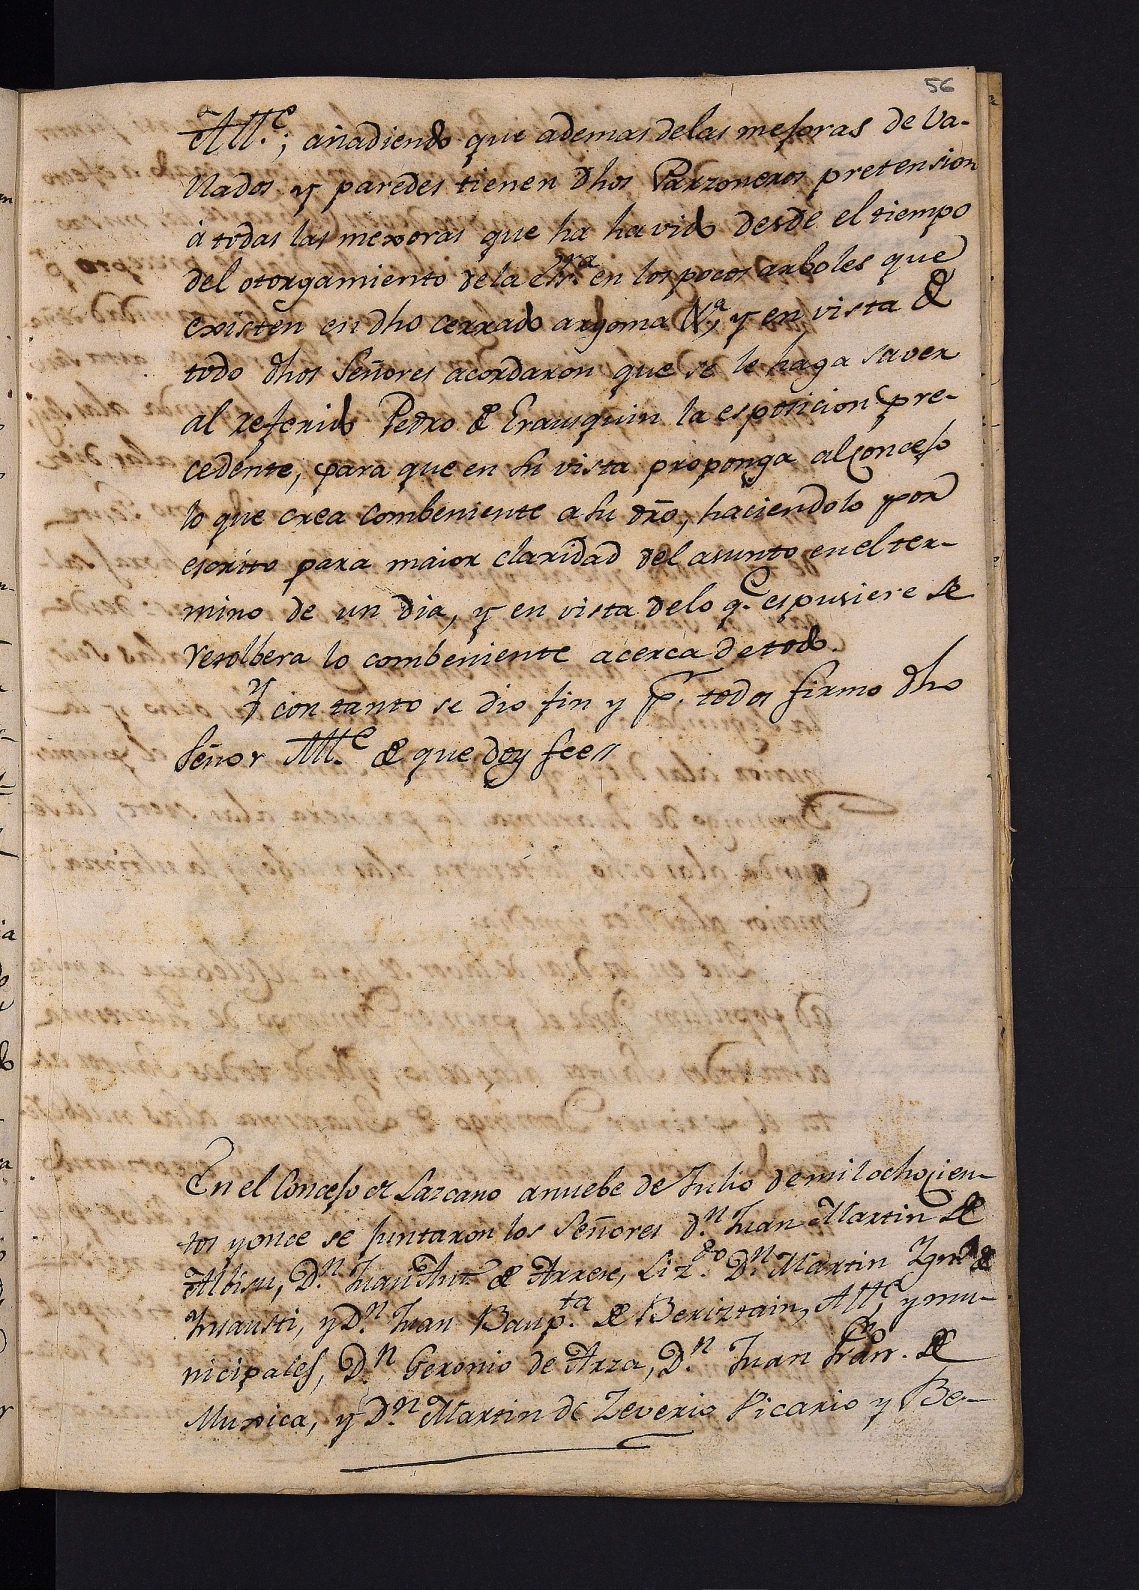 56
Allᵉ; añadiendo que ademas delas mejoras de Va-
llados y paredes tienen dhos Parzoneros pretension
á todas las mexoras que ha havido desde el tiempo
del otorgamiento dela Essrᵃ en los pocos arboles que
existen en dho cerrado argoma &ᵃ, y en vista de
todo dhos Señores acordaron que se le haga saver
al referido Pedro de Erausquin la esposicion pre-
cedente, para que en su vista proponga al Concejo
lo que crea combeniente a su dr̃o, haciendolo por
escrito para maior claridad del asunto en el ter-
mino de un dia, y en vista delo q.ᵉ espusiere se
resolbera lo combeniente acerca de todo.
Y con tanto se dio fin y p.ʳ todos firmo dho
Señor Allᵉ de que doy fee//
En el Concejo de Lazcano a nuebe de Julio de mil ochocien-
tos y once se juntaron los Señores d.ⁿ Juan Martin de
Albisu, D.ⁿ Juan Ant.º de Arrese, Liz.ᵈᵒ D.ⁿ Martin Ygn.º de
Ynausti, y D.ⁿ Juan Baup.ᵗᵃ de Beriztain, Allᵉ, y mu-
nicipales, D.ⁿ Geronio de Arza, D.ⁿ Juan Fran.ᶜᵒ de
Munica, y D.ⁿ Martin de Zeverio Vicario y Be-